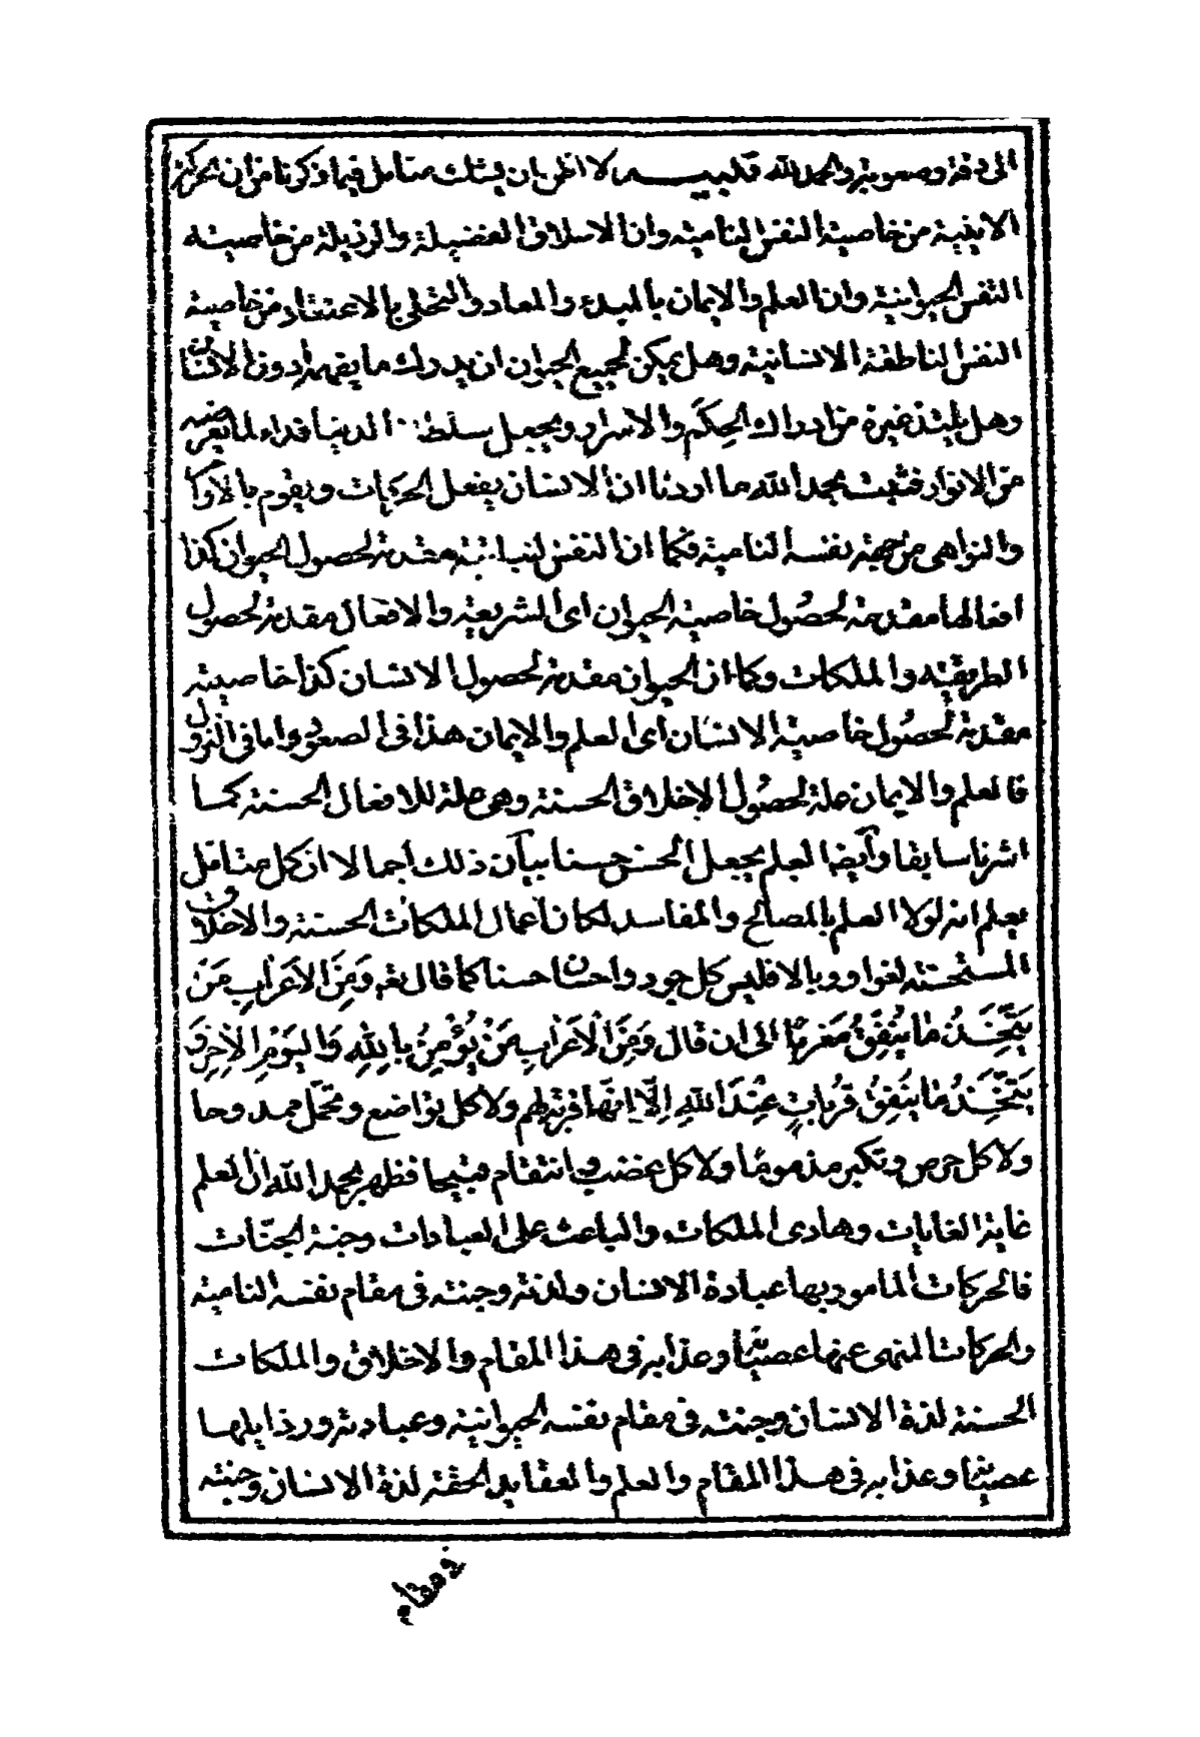 الى دقة وصعوبة والحمد لله تنبيه لا اظن بان يشك متامل فيما ذكرنا من ان الحركة
الاينية من خاصية النفس النامية وان الاخلاق الفضيلة والرذيلة من خاصيته
النفس الحيوانية وان العلم والايمان بالمبدء والمعاد والتحلى بالاعتقاد من خاصية
النفس الناطقة الانسانية وهل يمكن لجميع الحيوان ان يدرك ما يفهمه ادون الانسان
وهل يلتذ غيره من ادراك الحكم والاسرار ويجعل سلطنة الدنيا فداء لما يعرضه
من الانوار فثبت بحمد الله ما اردنا ان الانسان يفعل الحركات ويقوم بالاوا
والنواهى من جهة نفسه النامية فكما ان النفس النباتية مقدمة لحصول الحيوان كذا
افعالها مقدمة لحصول خاصية الحيوان اى الشريعة والافعال مقدمة لحصول
الطريقة والملكات وكما ان الحيوان مقدمة لحصول الانسان كذا خاصيته
مقدمة لحصول خاصية الانسان اى العلم والايمان هذا فى الصعود واما فى النزول
فالعلم والايمان علة لحصول الاخلاق الحسنة وهى علة للافعال الحسنة كما
اشرنا سابقا وايضا العلم يجعل الحسن حسنا بيان ذلك اجمالا ان كل متامل
يعلم انه لولا العلم بالمصالح والمفاسد لكان اعمال الملكات الحسنة والاخلاق
المستحسنة لغوا ووبالا فليس كل جود واحسان حسنا كما قال تع وَمِنَ الاَعْرَابِ مَنْ
يَتَّخِذُ مَا يُنْفِقُ مَغْرَمًا الى ان قال وَمِنَ الْاَعْرَابِ مَنْ يُؤْمِنُ بِاللهِ وَاليَوْمِ الاٰخِرِ وَ
يَتَّخِذُ مَا يُنْفِقُ قُرُبَاتٍ عِنْدَ اللهِ اِلَّا اِنَّهَا قُرْبَةٌ لَهُم ولا كل تواضع وتحمل ممدوحا
ولا كل حرص وتكبر مذموما ولا كل غضب وانتقام قبيحا فظهر بحمد الله ان العلم
غاية الغايات وهادى الملكات والباعث على العبادات وجنة الجنّات
فالحركات المامور بها عبادة الانسان ولذته وجنته فى مقام نفسه النامية
والحركات المنهى عنها عصيانه وعذابه فى هذا المقام والاخلاق والملكات
الحسنة لذة الانسان وجنته فى مقام نفسه الحيوانية وعبادته ورذايلها
عصيانه وعذابه فى هذا المقام والعلم والعقايد الحقة لذة الانسان وجنته
فى مقام